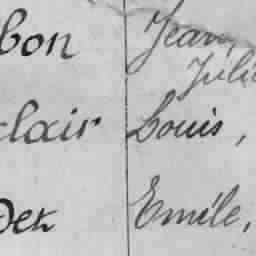 bon Jean,
Juli
clair Louis,
Det Emile,